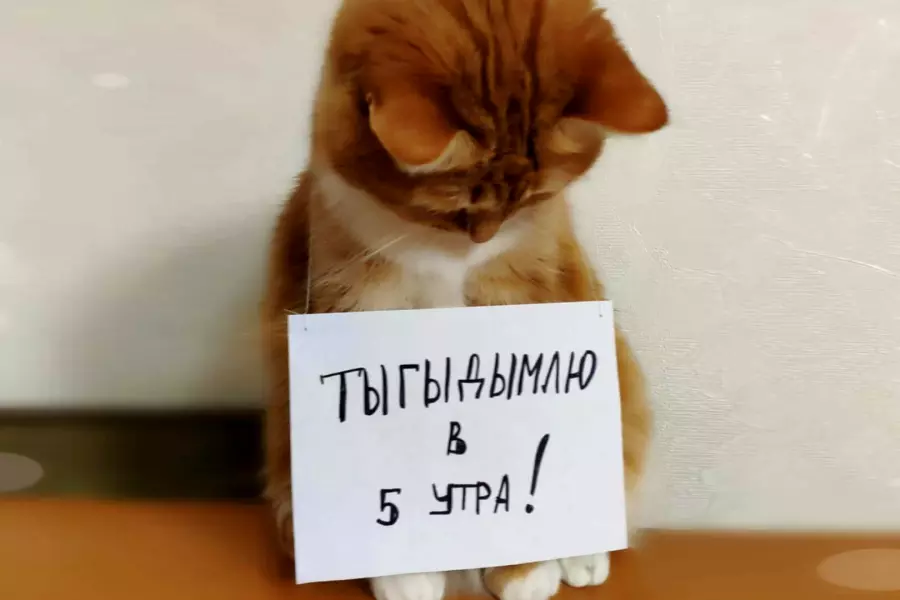 ТЫГЫДЫМЛЮ
В
5 УТРА!